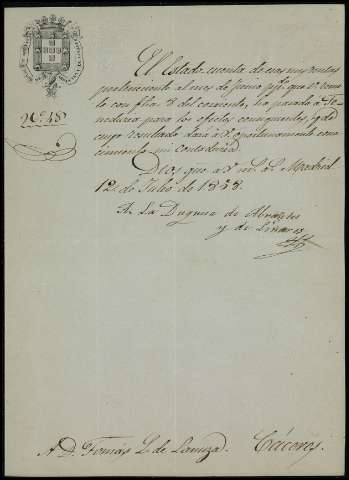 Nº 48
El Estado cuenta de esas mis rentas
perteneciente al mes de Junio ppº. que V. remi
te con fha. 8 del corriente, ha pasado á Te
neduria para los efectos consiguientes, y de
cuyo resultado dará á V. oportunamente cono
cimiento mi Contaduria.
Dios gue. a V. ms. as. Madrid
12 de Julio de 1858.
La Duquesa de Abrantes
y de Linares
A D. Tomás L. de Lanuza. Cáceres.